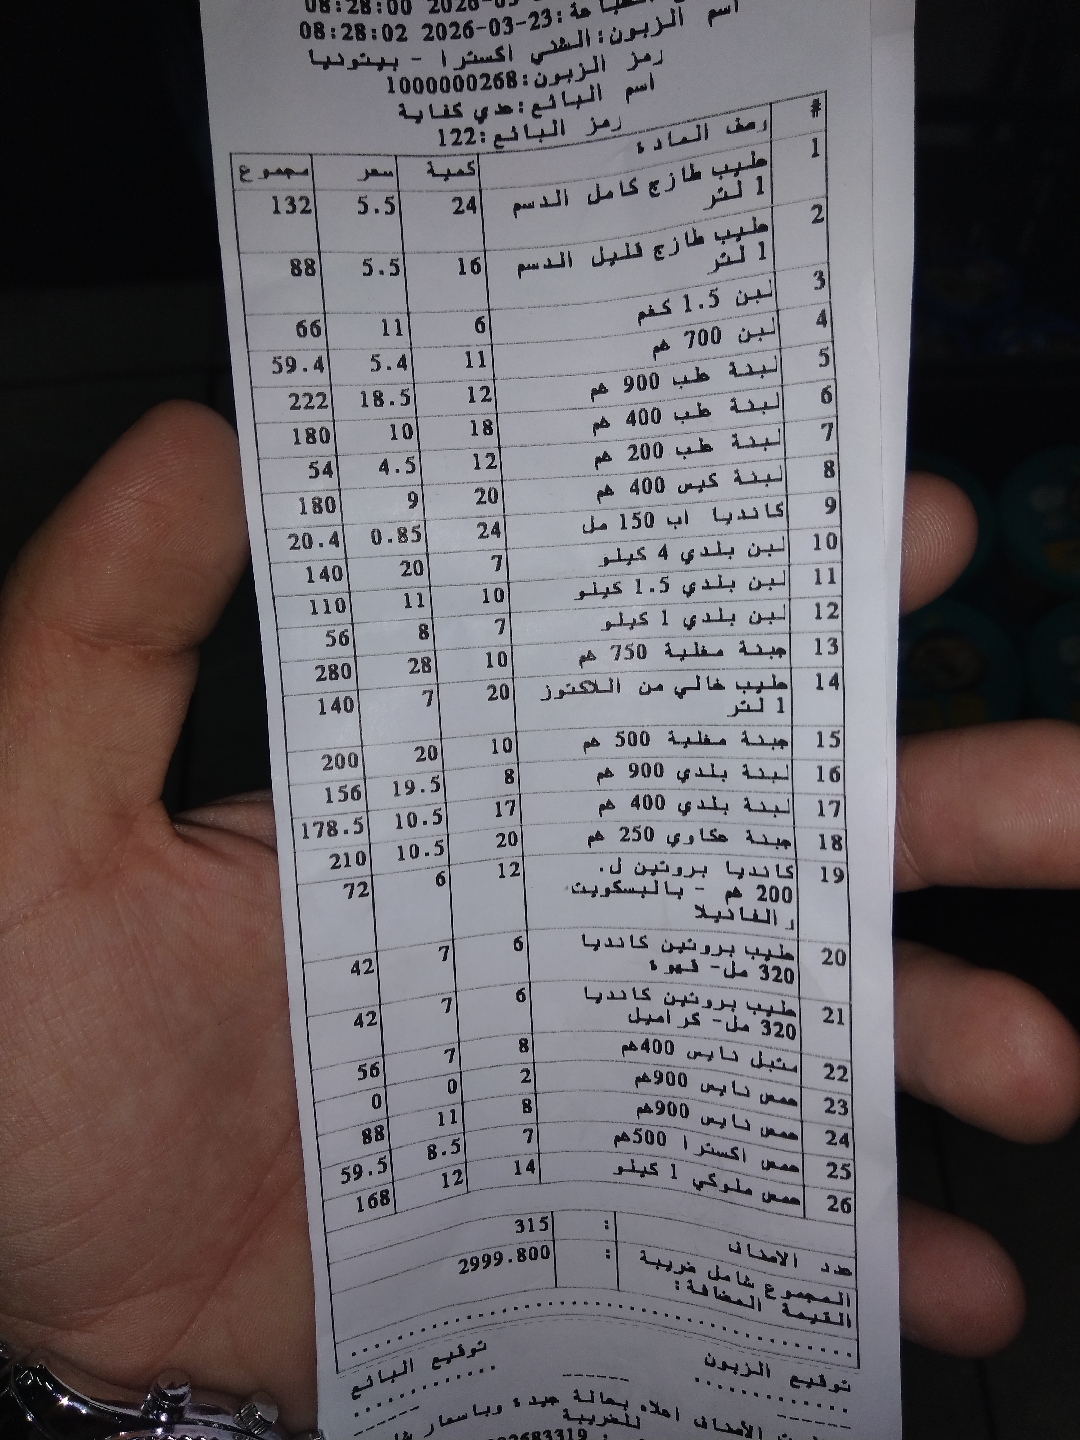 08:28:00
08:28:02 2026-03-23
اسم الزبون: الشني اكسترا - بيتونيا
رمز الزبون: 1000000268
اسم البائع: عدي كفاية
رمز البائع: 122
# وصف المادة كمية سعر مجموع
1 حليب طازج كامل الدسم 24 5.5 132
1 لتر
2 حليب طازج قليل الدسم 16 5.5 88
1 لتر
3 لبن 1.5 كغم 6 11 66
4 لبن 700 غم 11 5.4 59.4
5 لبنة طب 900 غم 12 18.5 222
6 لبنة طب 400 غم 18 10 180
7 لبنة طب 200 غم 12 4.5 54
8 لبنة كيس 400 غم 20 9 180
9 كانديا اب 150 مل 24 0.85 20.4
10 لبن بلدي 4 كيلو 7 20 140
11 لبن بلدي 1.5 كيلو 10 11 110
12 لبن بلدي 1 كيلو 7 8 56
13 جبنة مغلية 750 غم 10 28 280
14 حليب خالي من اللاكتوز 20 7 140
1 لتر
15 جبنة مغلية 500 غم 10 20 200
16 لبنة بلدي 900 غم 8 19.5 156
17 لبنة بلدي 400 غم 17 10.5 178.5
18 جبنة عكاوي 250 غم 20 10.5 210
19 كانديا بروتين ل. 12 6 72
200 غم - بالبسكويت
والفانيلا
20 حليب بروتين كانديا 6 7 42
320 مل- قهوة
21 حليب بروتين كانديا 6 7 42
320 مل- كراميل
22 متبل نايس 400غم 8 7 56
23 حمص نايس 900غم 2 0 0
24 حمص نايس 900غم 8 11 88
25 حمص اكسترا 500غم 7 8.5 59.5
26 حمص ملوكي 1 كيلو 14 12 168
عدد الاصناف : 315
المجموع شامل ضريبة : 2999.800
القيمة المضافة:
توقيع الزبون توقيع البائع
الأصناف اعلاه بحالة جيدة وباسعار
للضريبة